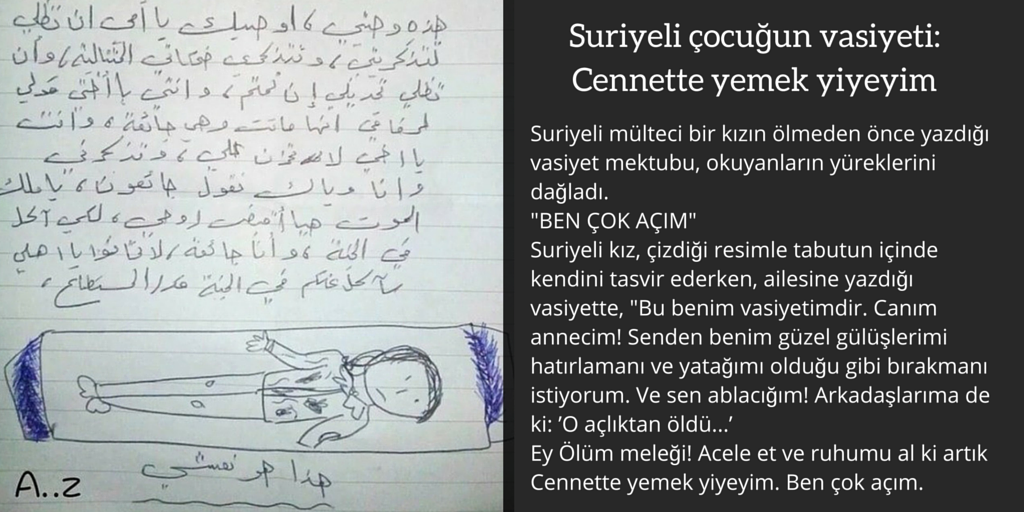 هذه وصيتي ، اوصيك يا أمي ان تظلي
تتذكريني ، وتتذكري ضحكاتي ، وأن
تظلي ، وانتي يا أختي قولي
لرفاقي انها ماتت وهي جائعة ، وانت
يا اخي لا تحزن علي ، وتذكرني
وانا وياك نقول جائعون ، يا ملك
الموت هيا أقبض روحي ، لكي آكل
في الجنة ، وأنا جائعة ، لا تخافوا يا اهلي
سآكل عنكم في الجنة قدر المستطاع ،
هذا هو نعشي
A..z
Suriyeli çocuğun vasiyeti:
Cennette yemek yiyeyim
Suriyeli mülteci bir kızın ölmeden önce yazdığı
vasiyet mektubu, okuyanların yüreklerini
dağladı.
"BEN ÇOK AÇIM"
Suriyeli kız, çizdiği resimle tabutun içinde
kendini tasvir ederken, ailesine yazdığı
vasiyette, "Bu benim vasiyetimdir. Canım
annecim! Senden benim güzel gülüşlerimi
hatırlamanı ve yatağımı olduğu gibi bırakmanı
istiyorum. Ve sen ablacığım! Arkadaşlarıma de
ki: ’O açlıktan öldü...’
Ey Ölüm meleği! Acele et ve ruhumu al ki artık
Cennette yemek yiyeyim. Ben çok açım.